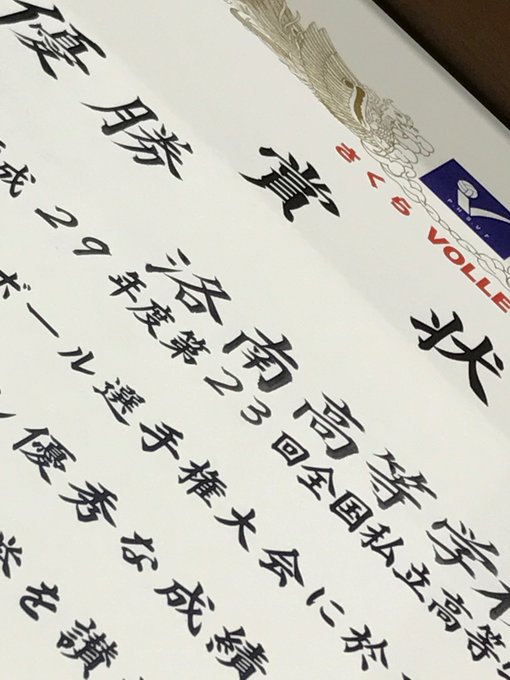 優勝
賞状
さくらVOLLE
洛南高等学校
成29年度第23回全国私立高等学
ボール選手権大会に於
優秀な成績
を讃